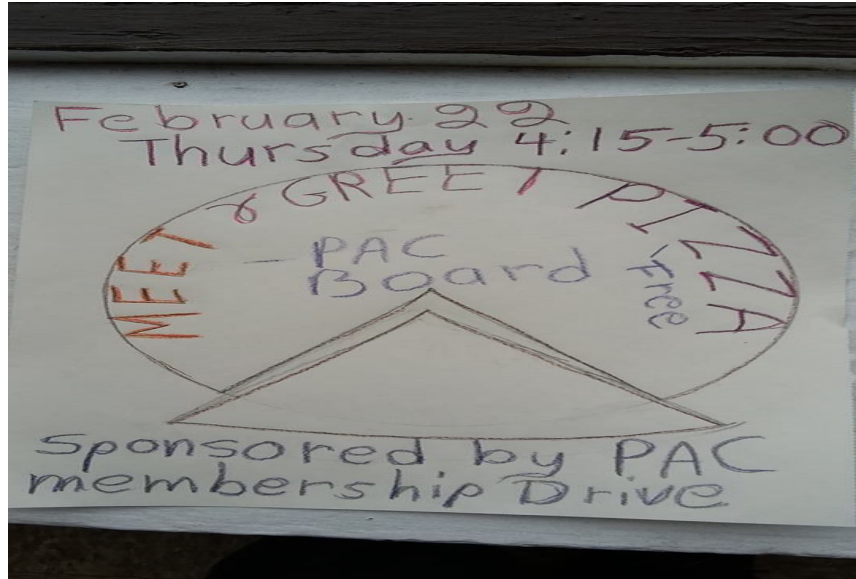 February 22
Thursday 4:15-5:00
MEET & GREET PIZZA
- PAC
Board
-Free
Sponsored by PAC
membership Drive